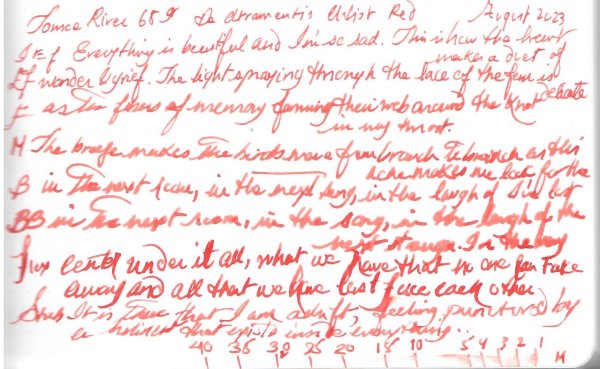 Tomoe River 68g De Atramentis Urushi Red August 2023
I EF Everything is beautiful and I'm so sad. This is how the heart
makes a duet of
EF wonder & grief. The light spraying through the lace of the fern is
delicate
F as the fibers of memory forming their web around the knot
in my throat.
M The breeze makes the birds move from branch to branch as this
ache makes me look for the
B in the next room, in the next song, in the laugh of I've lost
BB in the next room, in the song, in the laugh of the
next
center under it all, what we have that no one can take
away and all that we have lost face each other
Stub It is there that I am adrift, feeling punctured by
a holiness that exists inside everything...
40 35 30 25 20 15 10 5 4 3 2 1
M